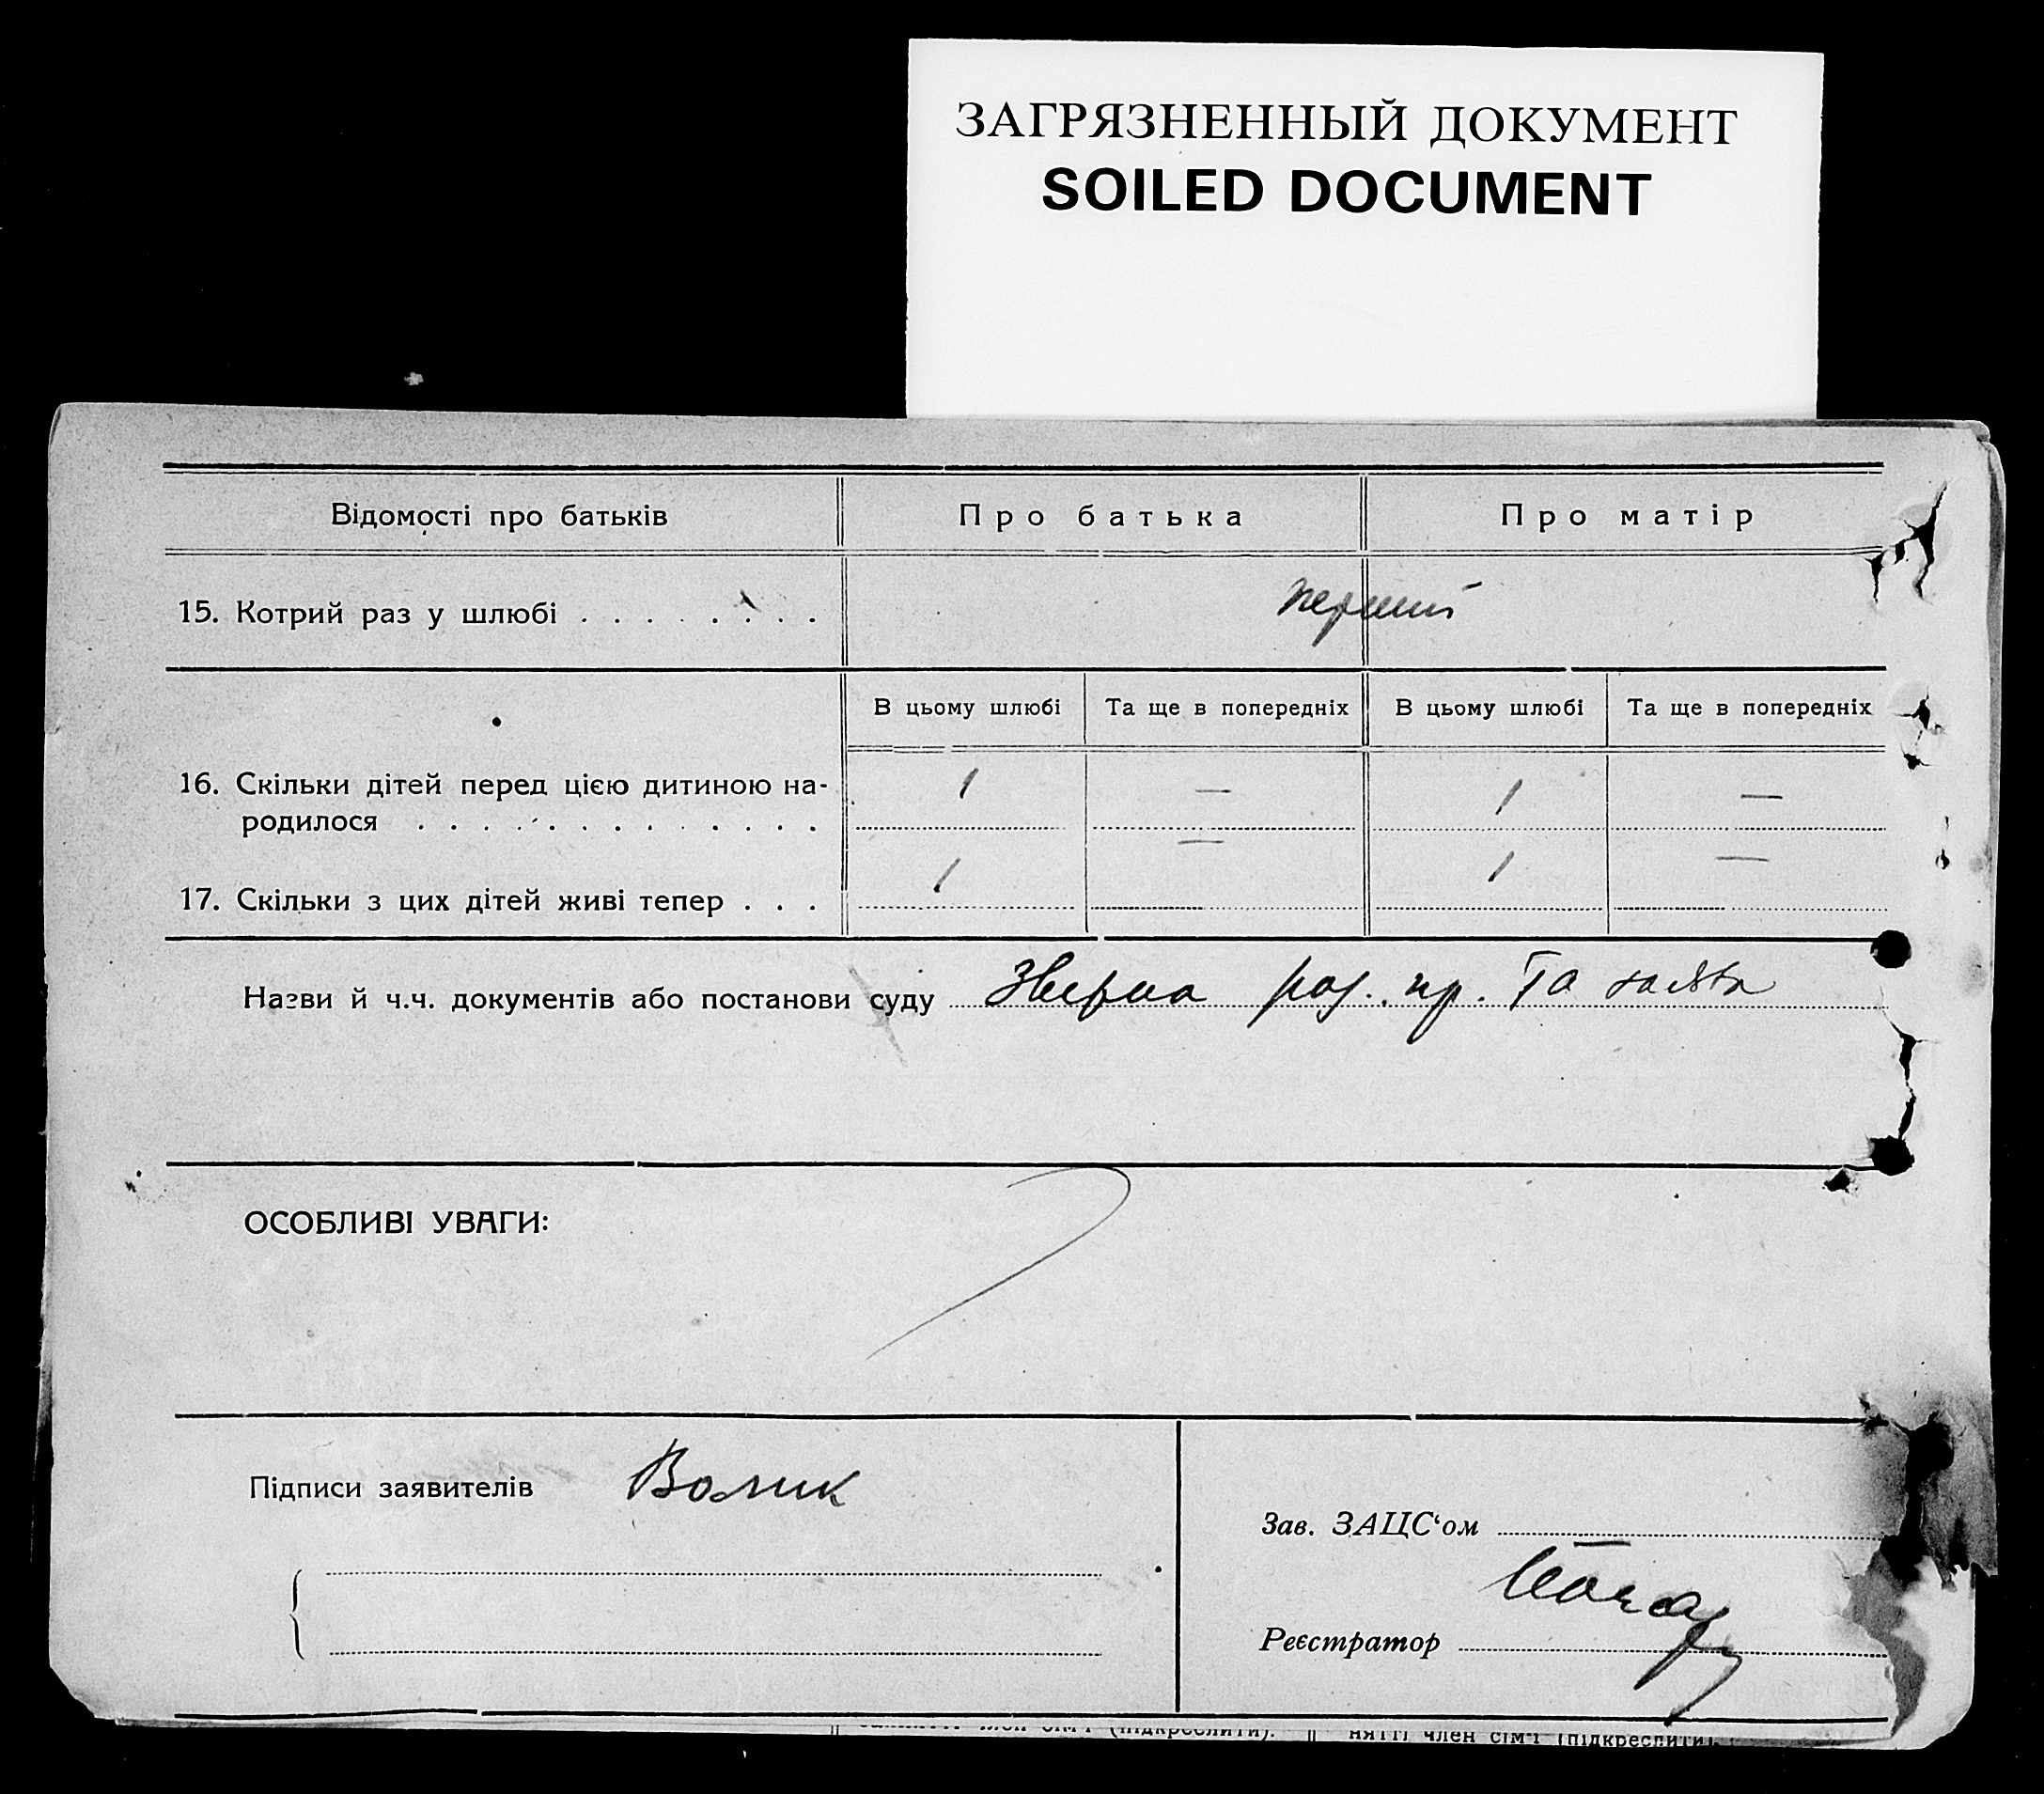 ЗАГРЯЗНЕННЫЙ ДОКУМЕНТ
SOILED DOCUMENT
Відомості про батьків Про батька Про матір
15. Котрий раз у шлюбі . . . . . . . . перший
В цьому шлюбі Та ще в попередніх В цьому шлюбі Та ще в попередніх
16. Скільки дітей перед цією дитиною на-
родилося . . . . . . . . . . . . . 1 — 1 —
17. Скільки з цих дітей живі тепер . . . 1 — 1 —
Назви й ч.ч. документів або постанови суду пр. та заява
ОСОБЛИВІ УВАГИ:
Підписи заявителів Волик
Зав. ЗАЦС‘ом
Реєстратор
член сім'ї (підкреслити). няття член сім'ї (підкреслити).